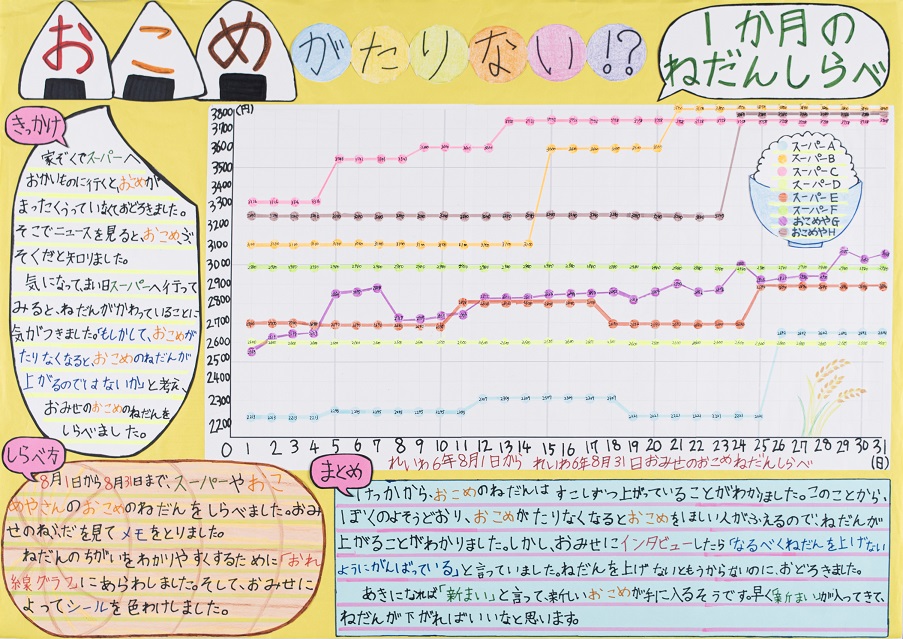 おこめがたりない!?
1か月の
ねだんしらべ
きっかけ
家ぞくでスーパーへ
おかいものに行くと、おこめが
まったくうっていなくておどろきました。
そこでニュースを見ると、おこめぶ
そくだと知りました。
気になって、まい日スーパーへ行って
みると、ねだんがかわっていることに
気がつきました。もしかして、おこめが
たりなくなると、おこめのねだんが
上がるのではないか」と考え、
おみせのおこめのねだんを
しらべました。
(円)
3800
3700
3500
3400
3300
3200
3100
3000
2900
2800
2700
2600
2500
2400
2300
2200
0 1 2 3 4 5 6 7 8 9 10 11 12 13 14 15 16 17 18 19 20 21 22 23 24 25 26 27 28 29 30 31
(日)
スーパーA
スーパーB
スーパーC
スーパーD
スーパーE
スーパーF
おこめやG
おこめやH
れいわ6年8月1日から れいわ6年8月31日おみせのおこめねだんしらべ
しらべ方
8月1日から8月31日まで、スーパーやおこ
めやさんのおこめのねだんをしらべました。おみ
せのねふだを見てメモをとりました。
ねだんのちがいをわかりやすくするために「おれ
線グラフ」にあらわしました。そして、おみせに
よってシールを色わけしました。
まとめ
けっかから、おこめのねだんは すこしずつ上がっていることがわかりました。このことから、
ぼくのよそうどおり、おこめがたりなくなるとおこめをほしい人がふえるので、ねだんが
上がることがわかりました。しかし、おみせにインタビューしたら「なるべくねだんを上げない
ようにがんばっている」と言っていました。ねだんを上げないともうからないのに、おどろきました。
あきになれば「新まい」と言って、新しいおこめが手に入るそうです。早く「新まい」が入ってきて、
ねだんが下がればいいなと思います。